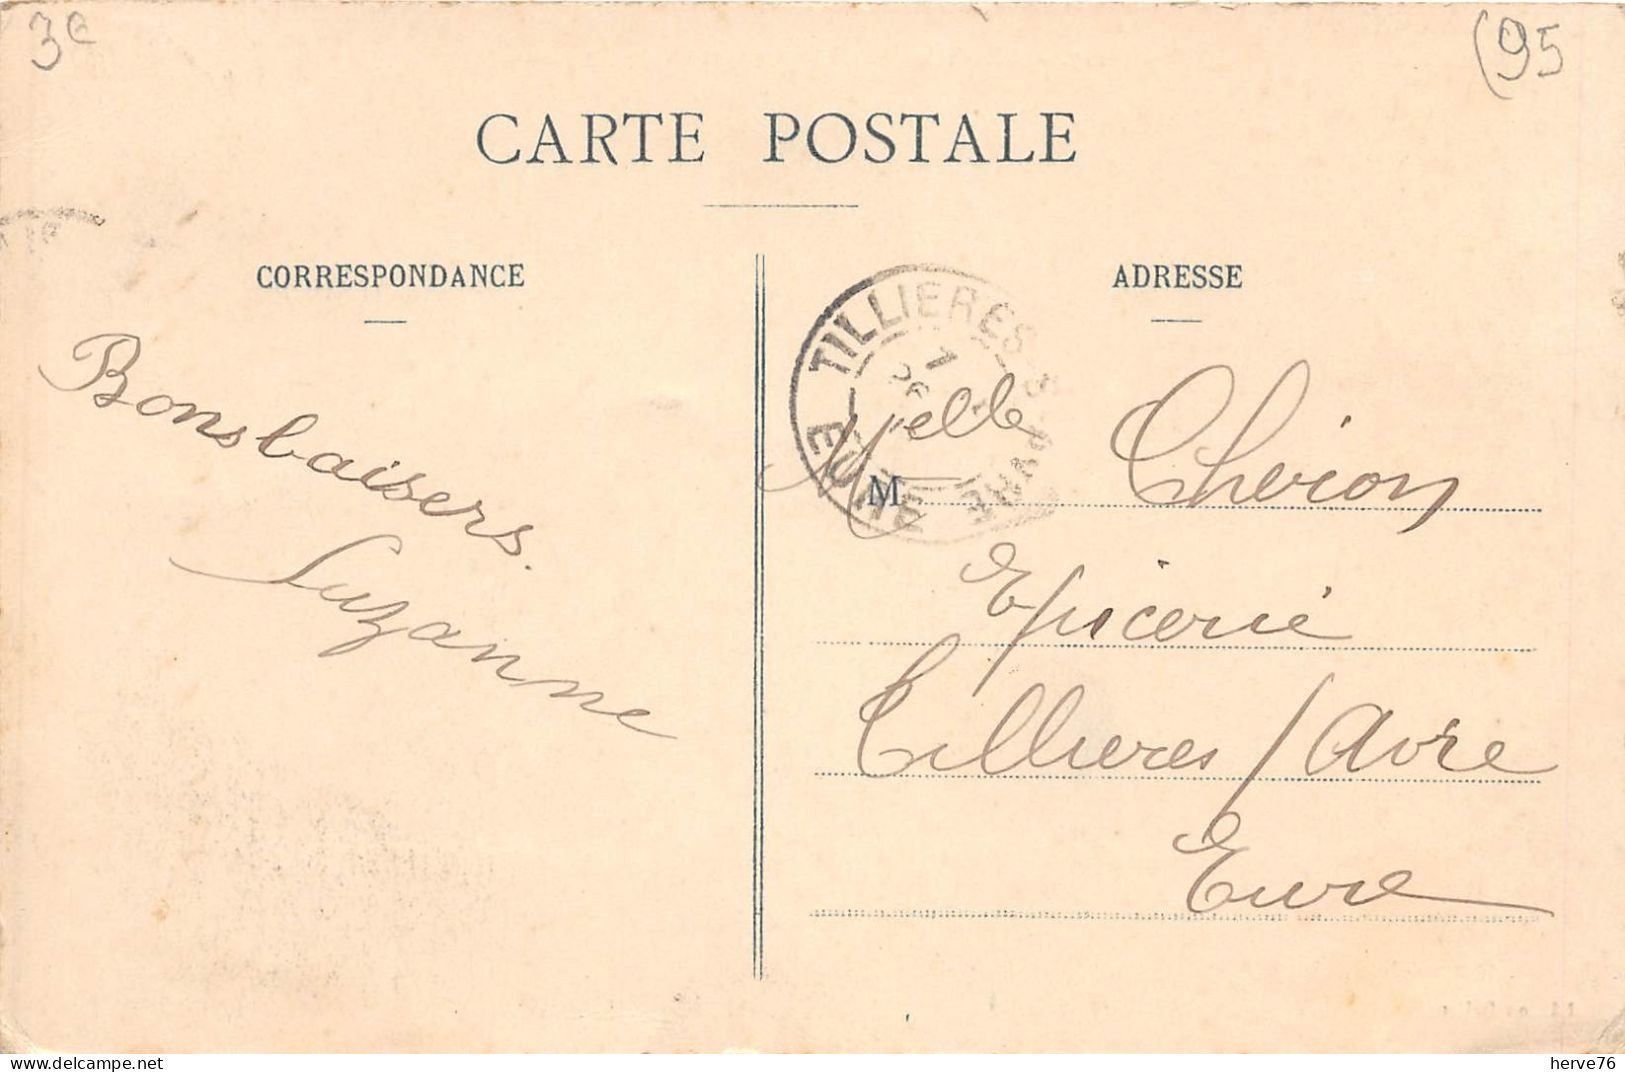 3e
(95
CARTE POSTALE
CORRESPONDANCE
ADRESSE
TILLIERES-S-AVRE
7
EURE
Bons baisers.
Suzanne
M
Melle Chéron
Epicerie
Tillieres / Avre
Eure
delcampe.net
herve76